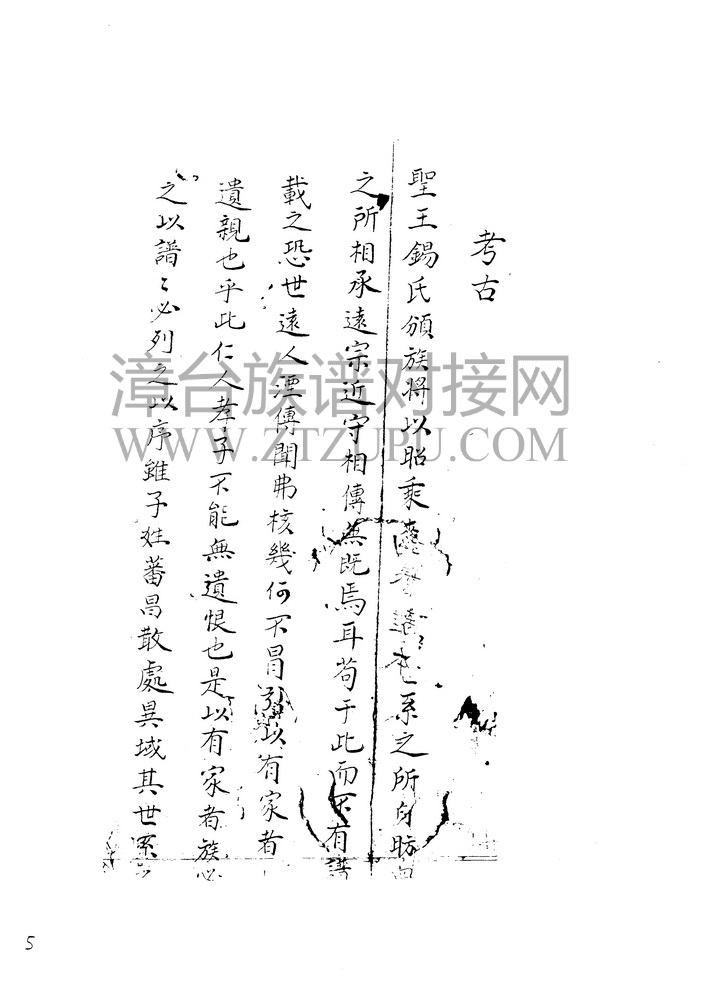 考古
聖王錫氏頒族將以昭乘系之所自昉
之所相承遠宗近守相傳無既焉耳苟于此而不有譜
載之恐世遠人湮傳聞弗核幾何不冒以有家者
遺親也乎此仁人孝子不能無遺恨也是以有家者族必
之以譜〻必列之以序雖子姓蕃昌散處異域其世系
漳台族谱对接网
WWW.ZTZUPU.COM
5